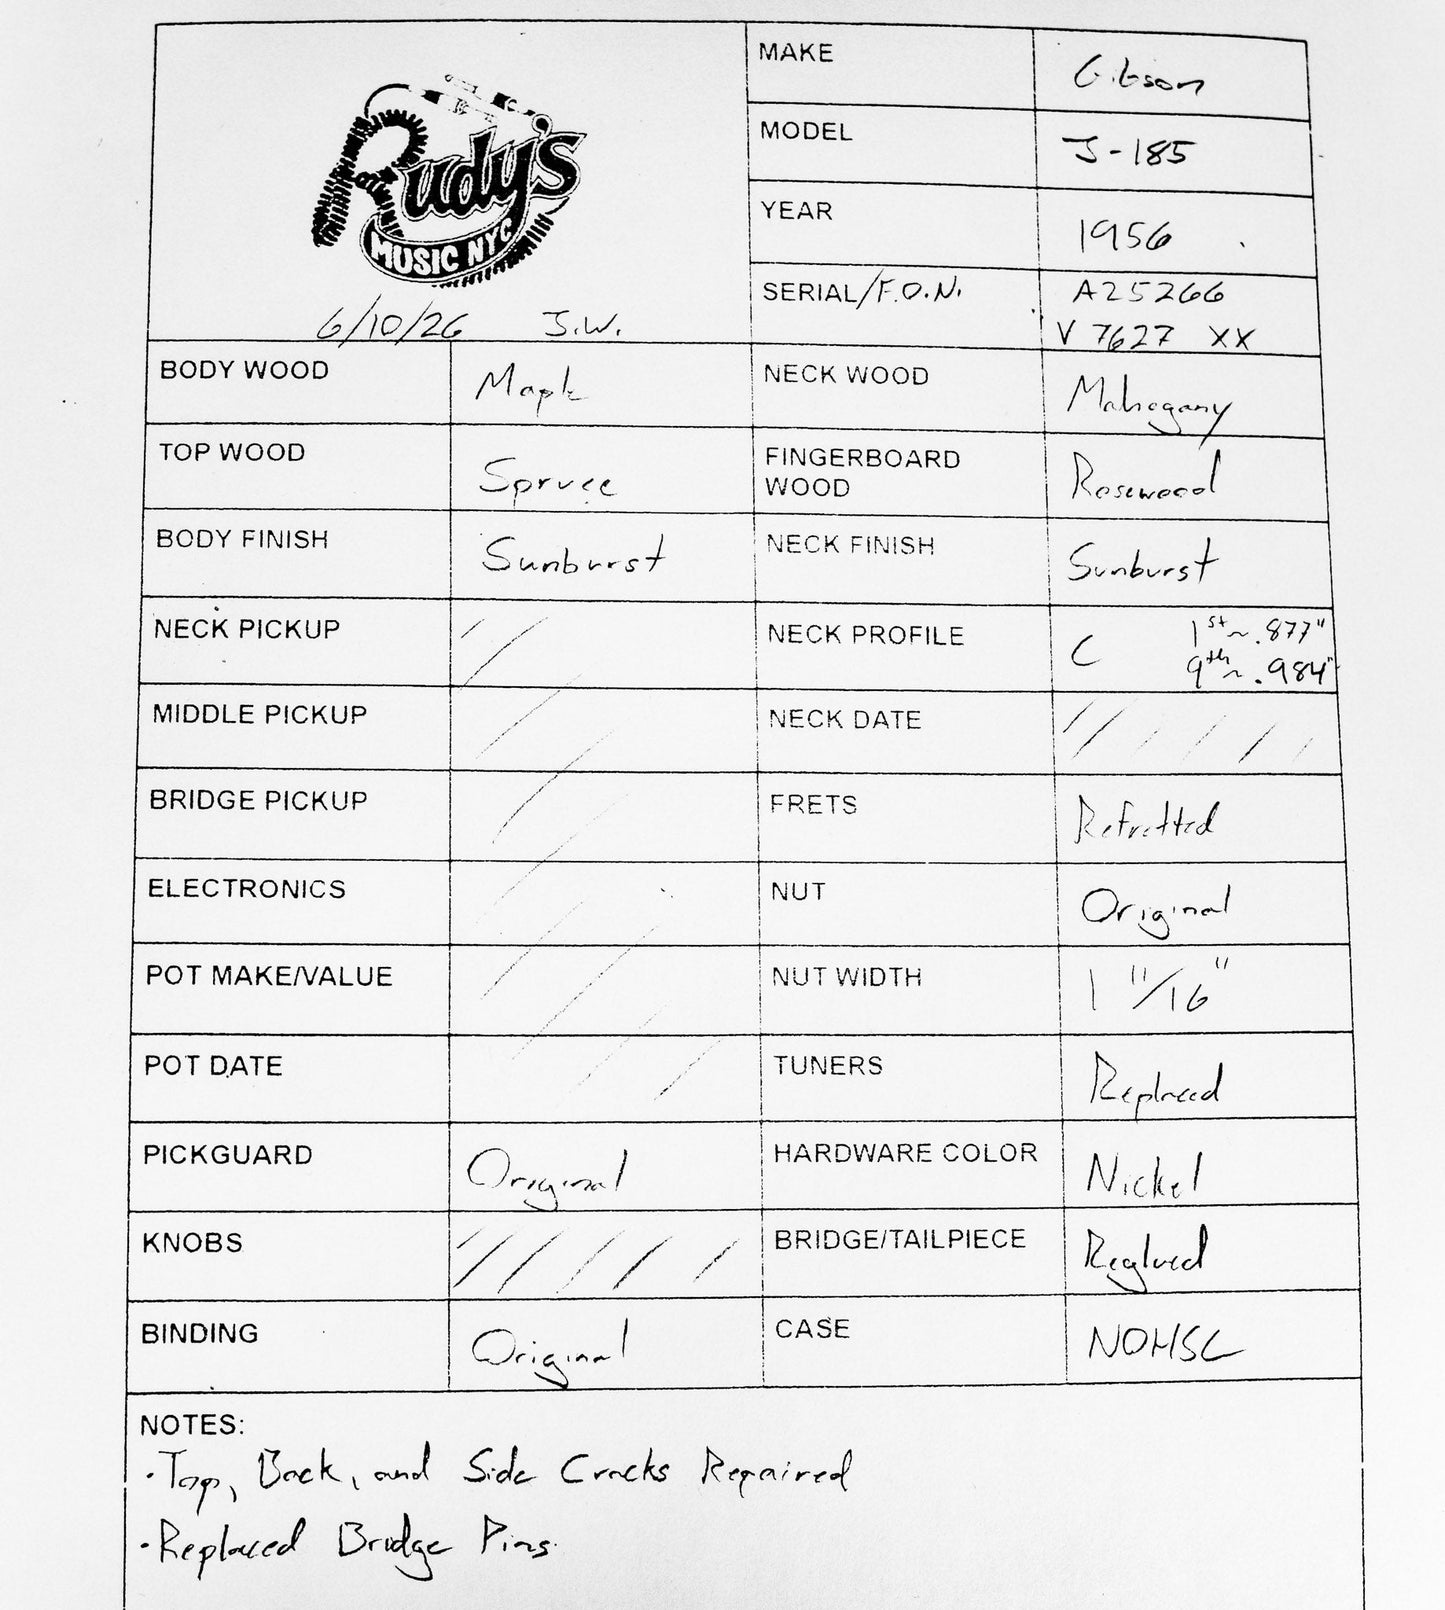 Rudy's
MUSIC NYC
6/10/26 J.W.
MAKE Gibson
MODEL J-185
YEAR 1956
SERIAL/F.O.N. A25266
V 7627 XX
BODY WOOD Maple
NECK WOOD Mahogany
TOP WOOD Spruce
FINGERBOARD
WOOD Rosewood
BODY FINISH Sunburst
NECK FINISH Sunburst
NECK PICKUP
NECK PROFILE C 1st ~ .877"
9th ~ .984"
MIDDLE PICKUP
NECK DATE
BRIDGE PICKUP
FRETS Refretted
ELECTRONICS
NUT Original
POT MAKE/VALUE
NUT WIDTH 1 11/16"
POT DATE
TUNERS Replaced
PICKGUARD Original
HARDWARE COLOR Nickel
KNOBS
BRIDGE/TAILPIECE Reglued
BINDING Original
CASE NOHSC
NOTES:
· Top, Back, and Side Cracks Repaired
· Replaced Bridge Pins